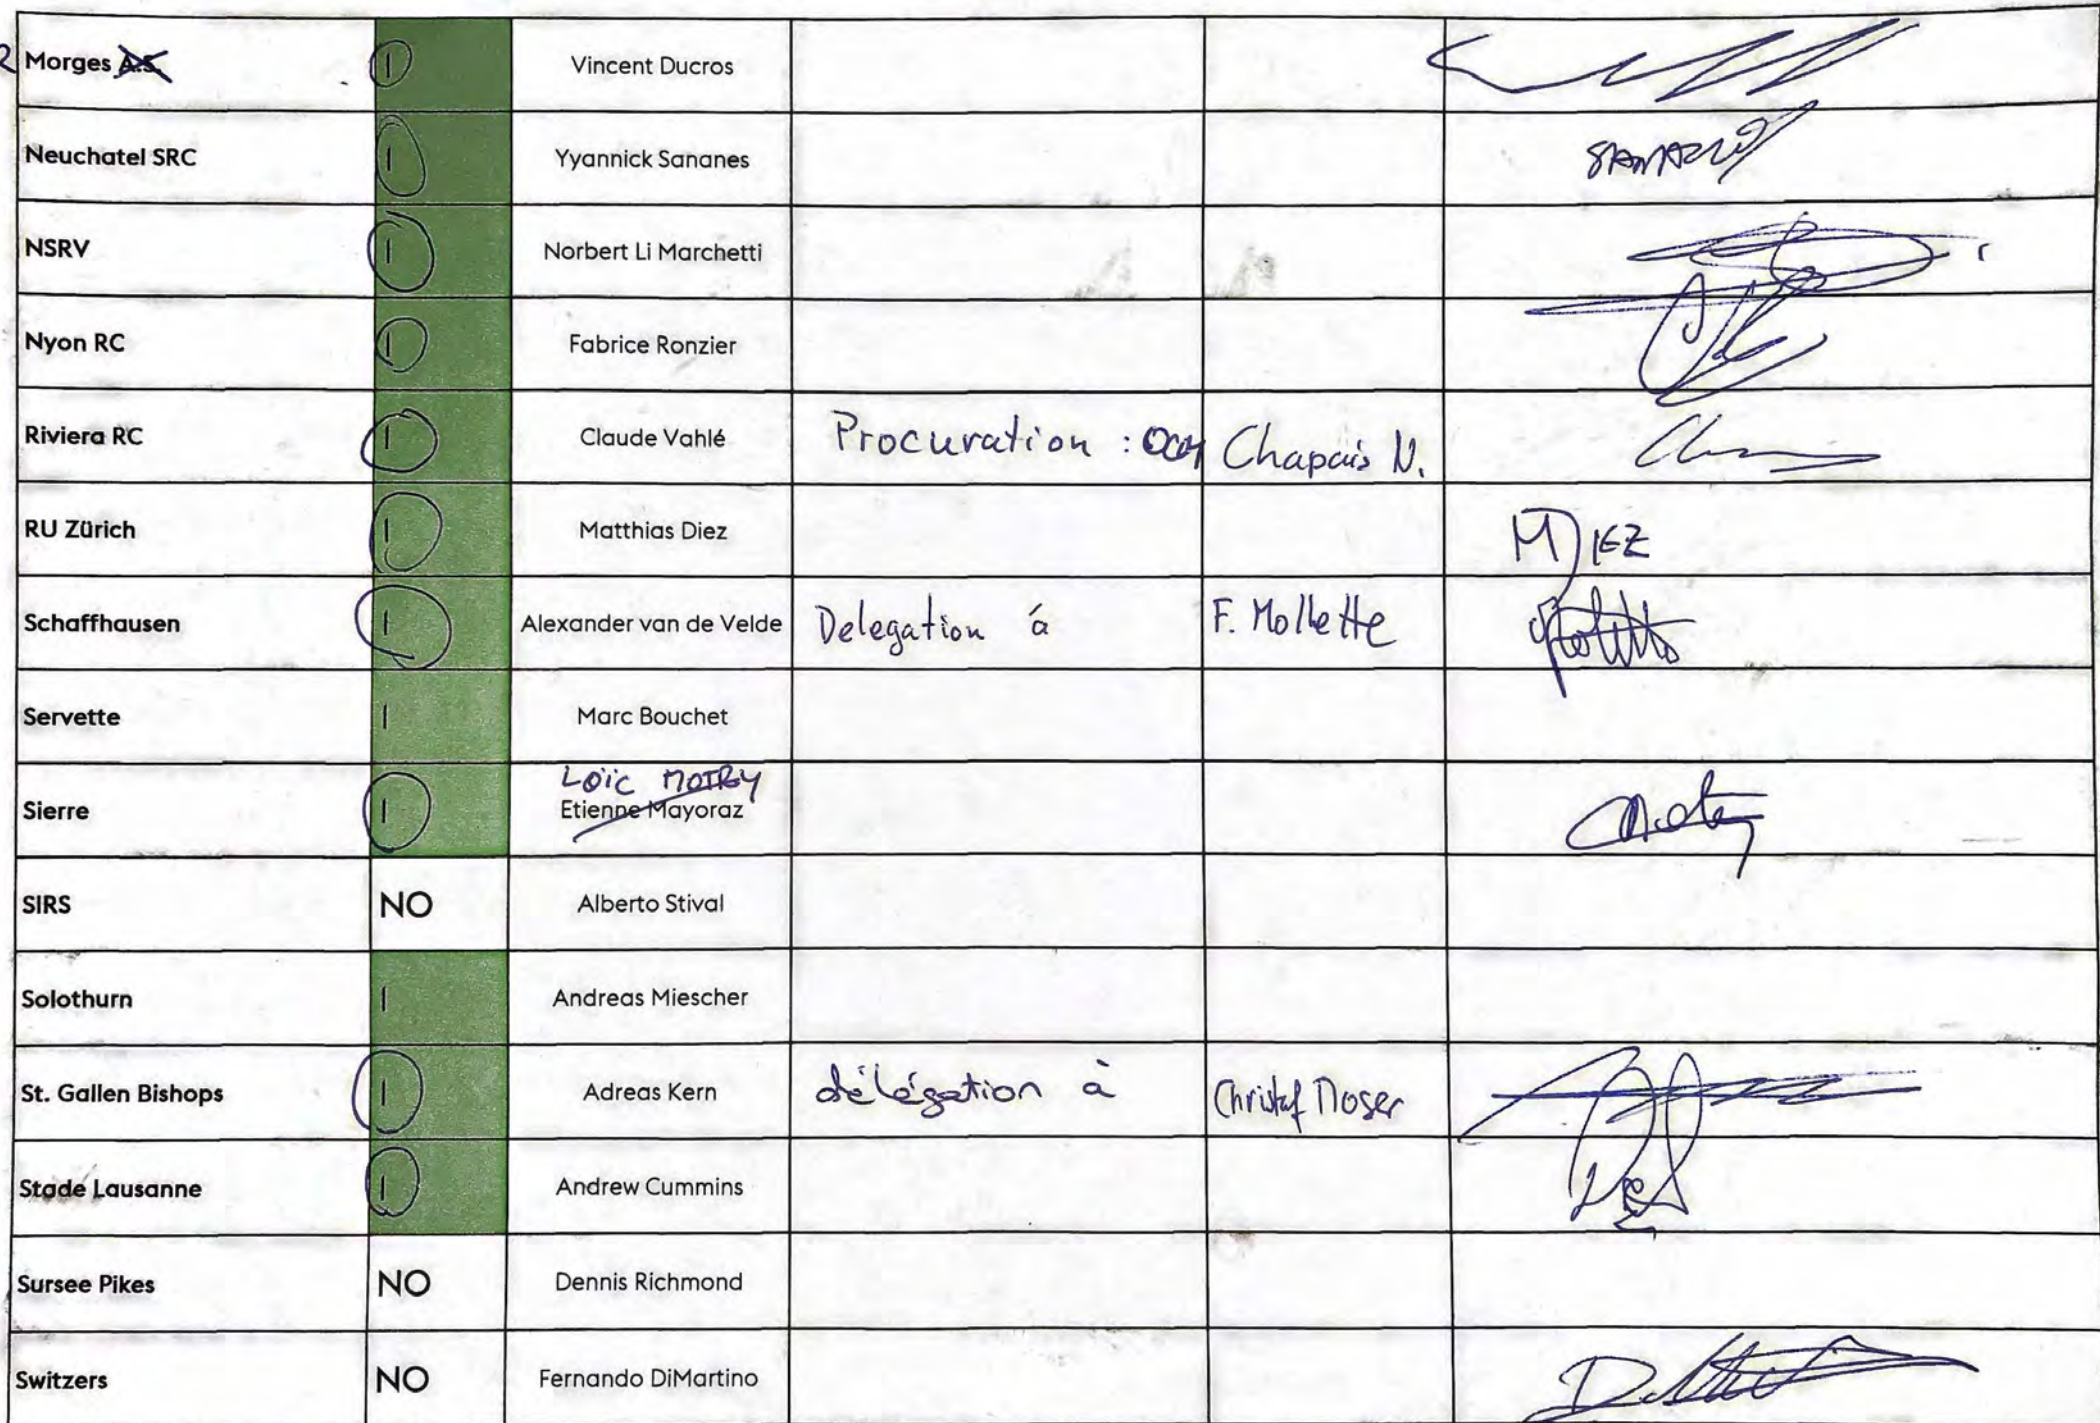 Morges A.S. 1 Vincent Ducros
Neuchatel SRC 1 Yyannick Sananes
NSRV 1 Norbert Li Marchetti
Nyon RC 1 Fabrice Ronzier
Riviera RC 1 Claude Vahlé Procuration : Chapais N.
RU Zürich 1 Matthias Diez M DIEZ
Schaffhausen 1 Alexander van de Velde Delegation á F. Mollette
Servette 1 Marc Bouchet
Loïc
Sierre 1 Etienne Mayoraz
SIRS NO Alberto Stival
Solothurn 1 Andreas Miescher
St. Gallen Bishops 1 Adreas Kern délégation à Christof Moser
Stade Lausanne 1 Andrew Cummins
Sursee Pikes NO Dennis Richmond
Switzers NO Fernando DiMartino